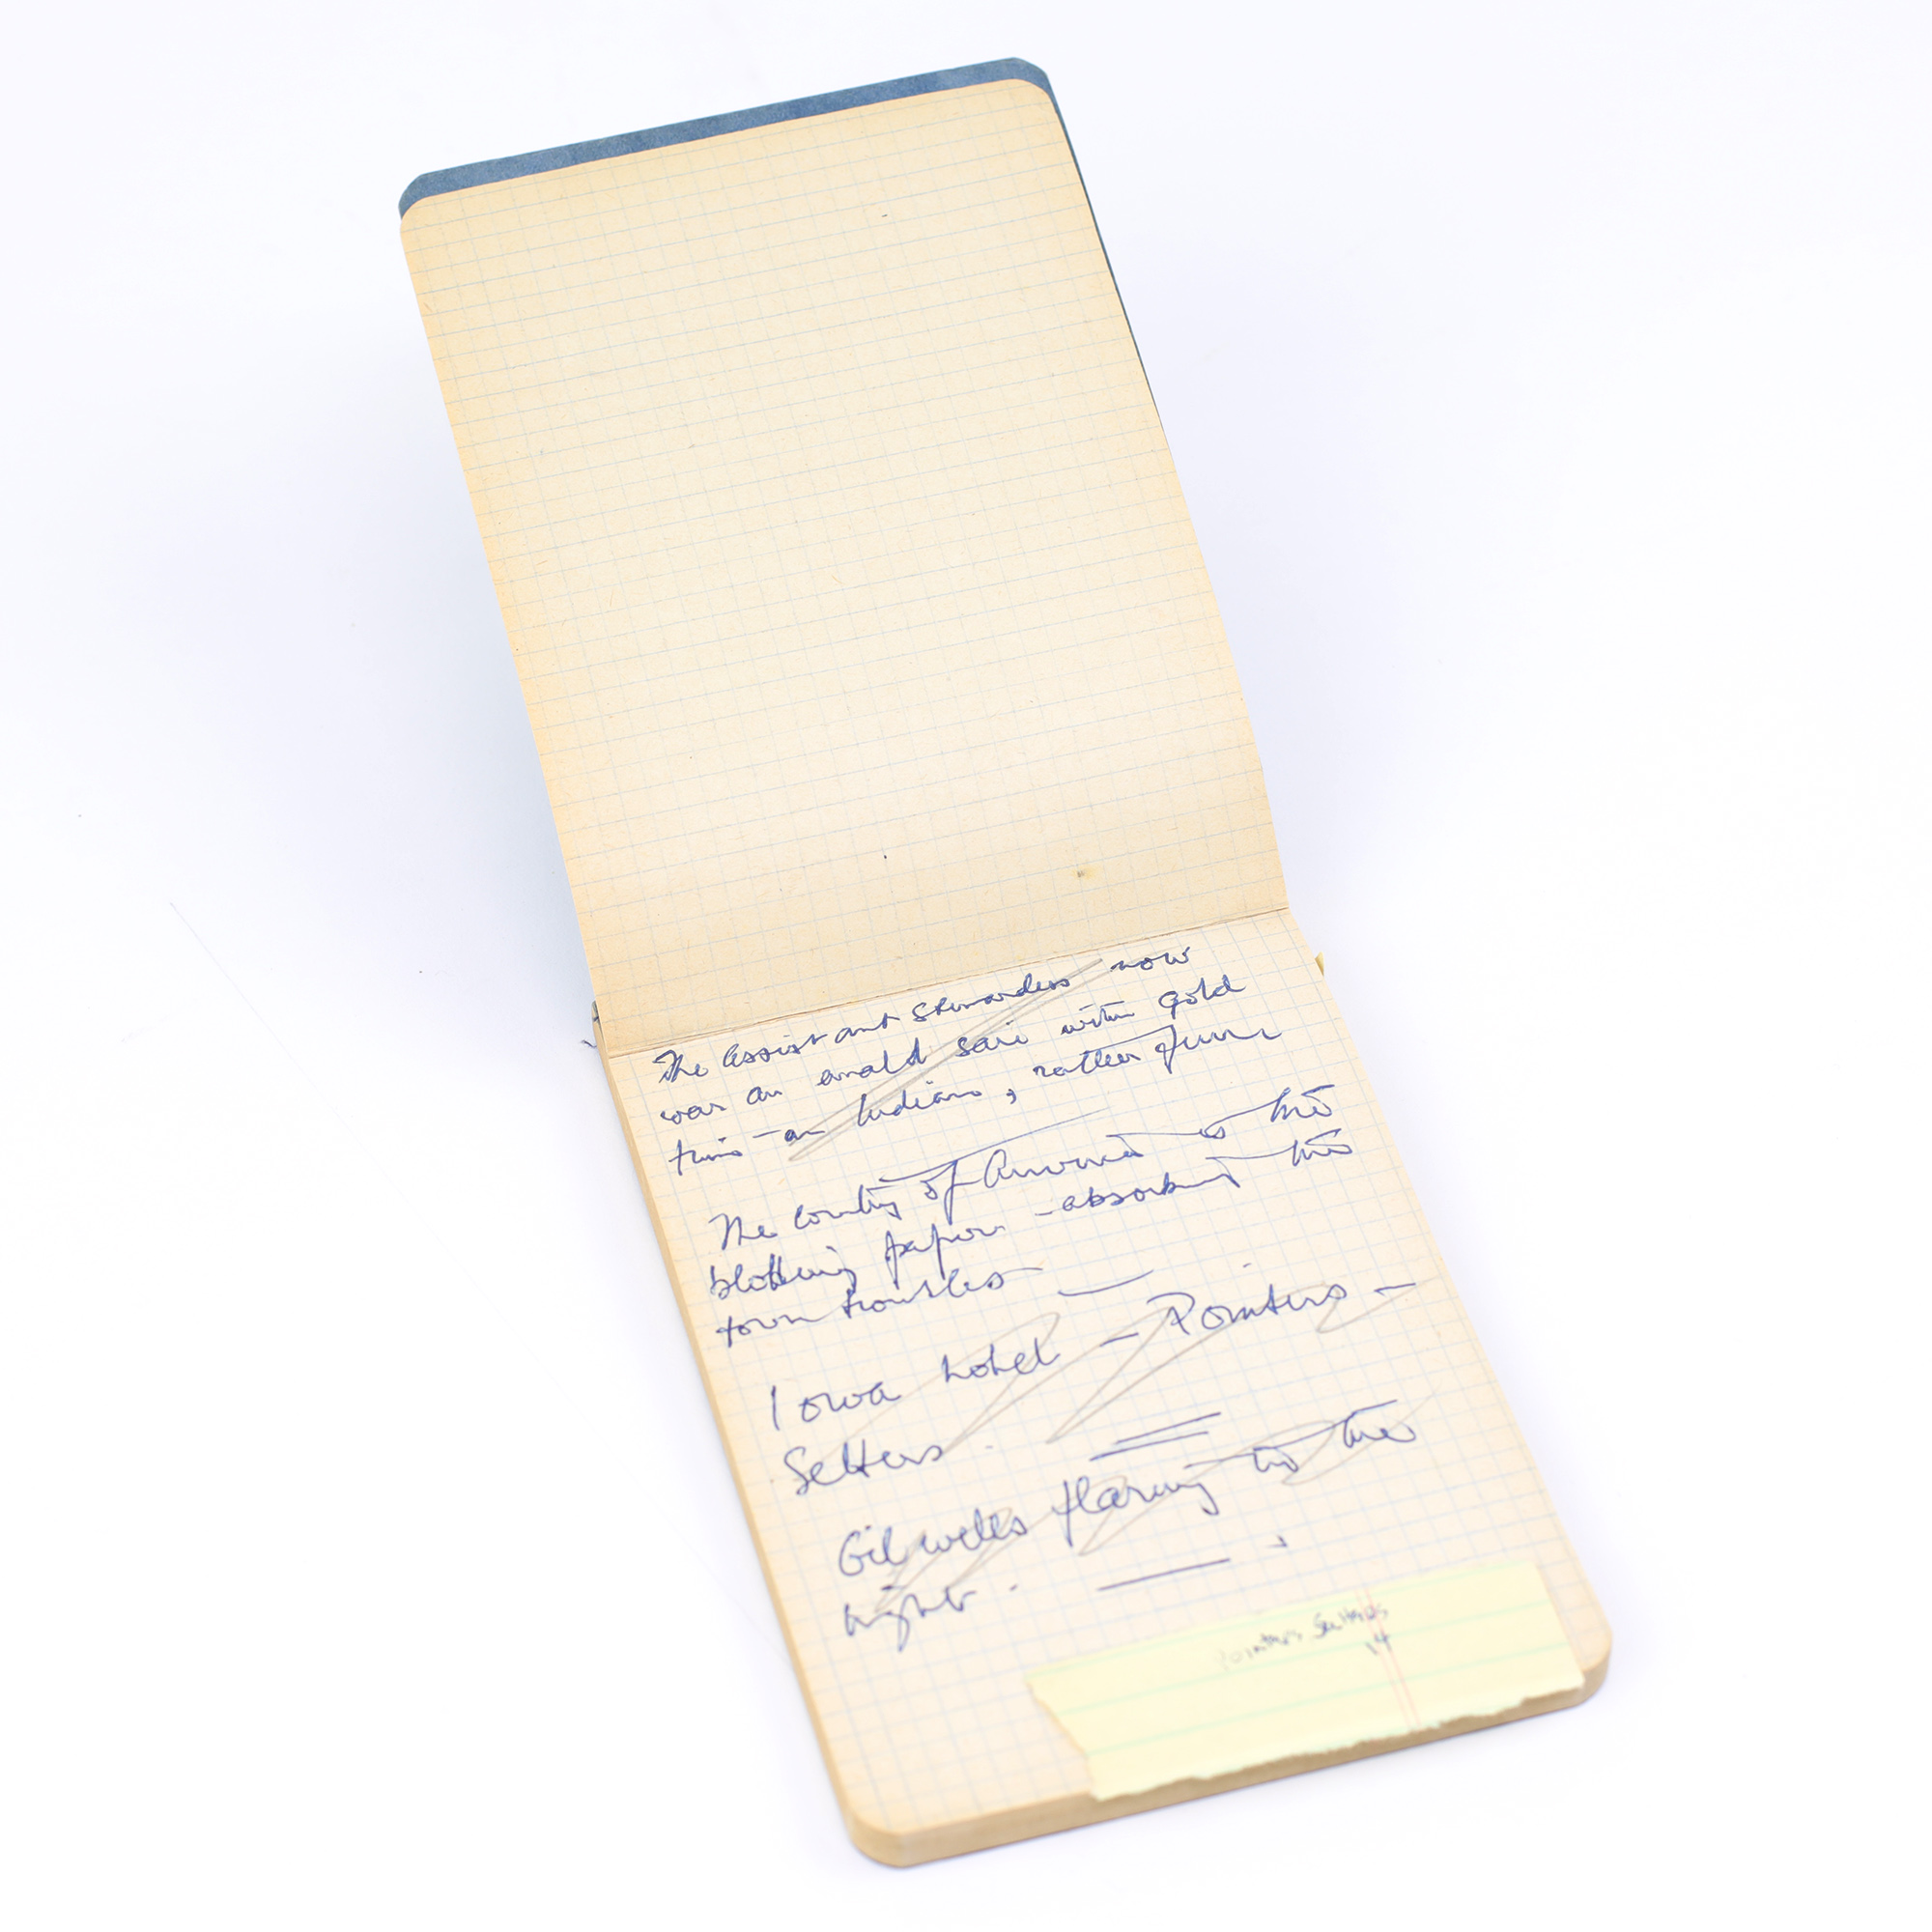 The assistant stewardess now
was an sari with gold
trim – an Indian, rather
The of America is the
blotting paper – absorbent the
town troubles –
Iowa hotel – Pointers –
Setters.
Gil wells flaring in the
night.
Pointers Setters
14